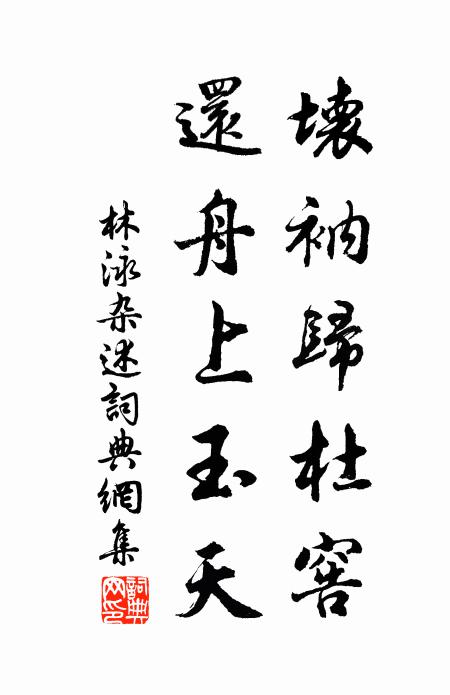 壞衲歸杜窖
還舟上玉天
林泳杂述詞典網集
詞典
网印